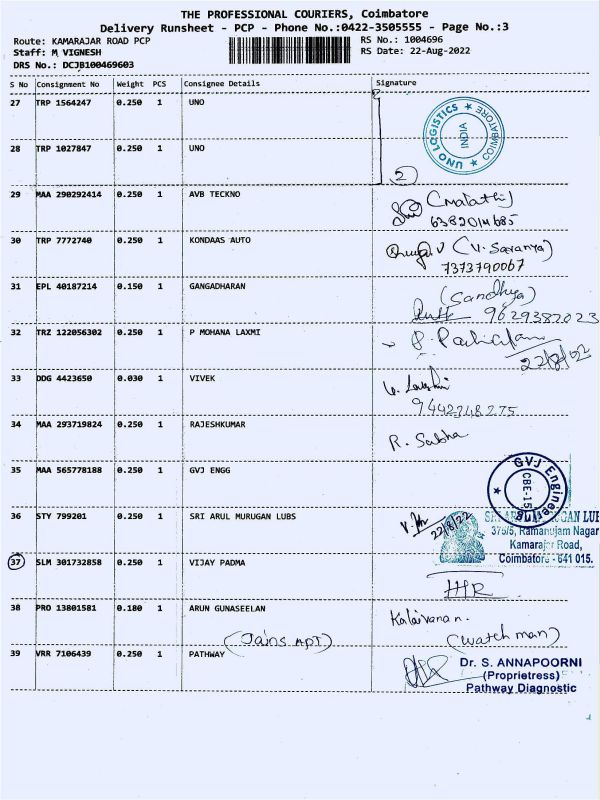 THE PROFESSIONAL COURIERS, Coimbatore
Delivery Runsheet - PCP - Phone No.:0422-3505555 - Page No.:3
Route: KAMARAJAR ROAD PCP RS No.: 1004696
Staff: M VIGNESH RS Date: 22-Aug-2022
DRS No.: DCJB100469603
S No Consignment No Weight PCS Consignee Details Signature
27 TRP 1564247 0.250 1 UNO
UNO LOGISTICS COIMBATORE INDIA
28 TRP 1027847 0.250 1 UNO
2
29 MAA 290292414 0.250 1 AVB TECKNO (Malathi)
6382014685
30 TRP 7772740 0.250 1 KONDAAS AUTO (V. Saranya)
7373790067
31 EPL 40187214 0.150 1 GANGADHARAN (Sandhya)
9629382023
32 TRZ 122056302 0.250 1 P MOHANA LAXMI
22/8/22
33 DDG 4423650 0.030 1 VIVEK
9442348275
34 MAA 293719824 0.250 1 RAJESHKUMAR R. Sabha
35 MAA 565778188 0.250 1 GVJ ENGG
GVJ Engineering CBE-15
36 STY 799201 0.250 1 SRI ARUL MURUGAN LUBS 22/8/22
375/5, Ramanujam Nagar
Kamarajar Road,
Coimbatore - 641 015.
37 SLM 301732858 0.250 1 VIJAY PADMA
38 PRO 13801581 0.180 1 ARUN GUNASEELAN Kalaivanan.
(Jains APT) (watch man)
39 VRR 7106439 0.250 1 PATHWAY
Dr. S. ANNAPOORNI
(Proprietress)
Pathway Diagnostic